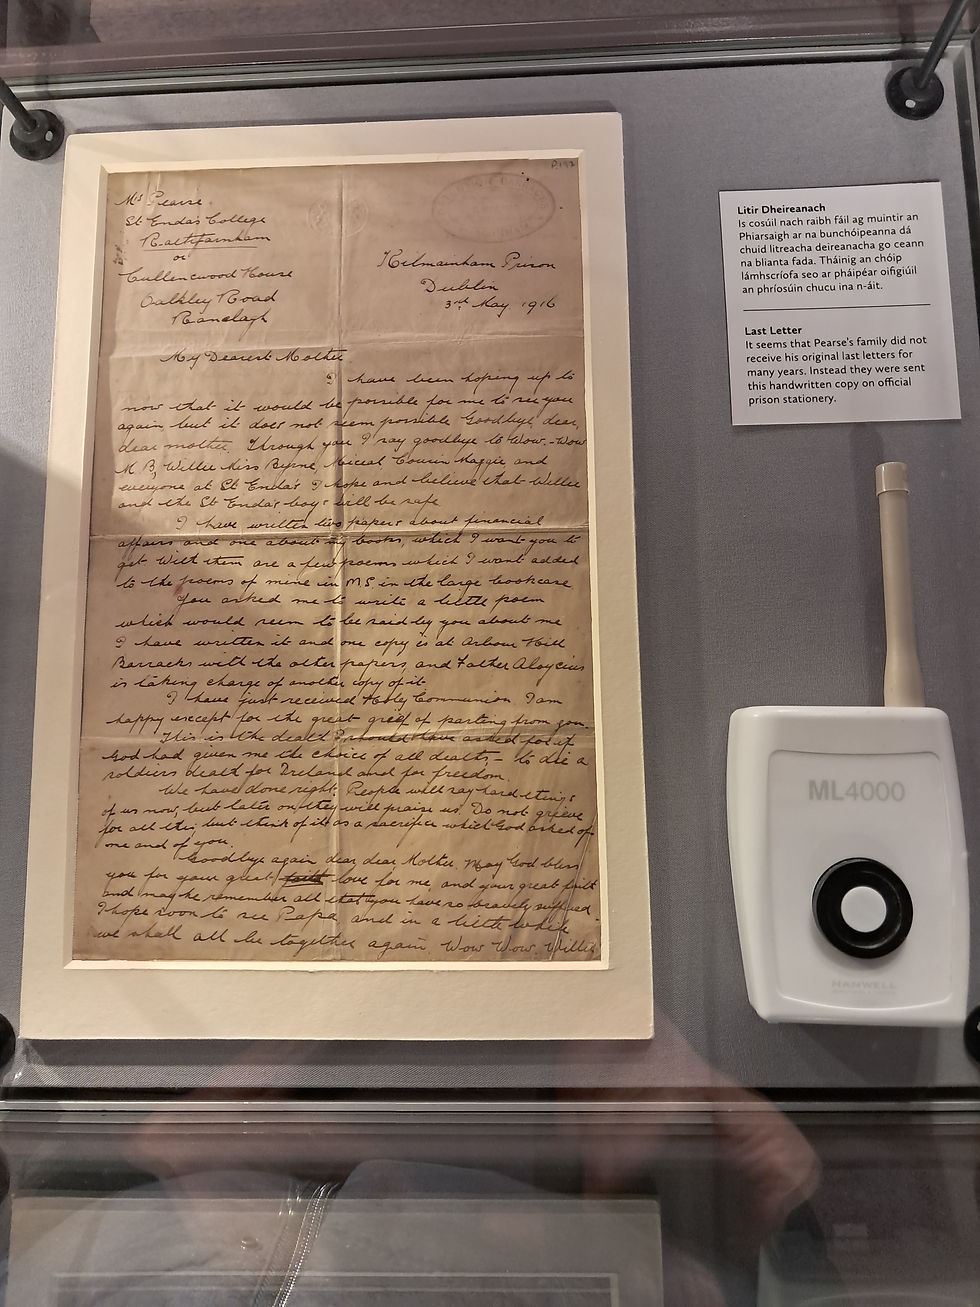 P.192
Mrs Pearse.
St Enda's College
Rathfarnham
or
Cullenswood House
Oakley Road
Ranelagh
Kilmainham Prison
Dublin
3rd May 1916
My Dearest Mother
I have been hoping up to
now that it would be possible for me to see you
again but it does not seem possible Goodbye, dear,
dear mother. Through you I say goodbye to Wow-Wow
M B, Willie Miss Byrne, Miceal Cousin Maggie and
everyone at St Enda's I hope and believe that Willie
and the St Enda's boys will be safe
I have written two papers about financial
affairs and one about my books, which I want you to
get With them are a few poems which I want added
to the poems of mine in MS. in the large bookcase
You asked me to write a little poem
which would seem to be said by you about me
I have written it and one copy is at Arbour Hill
Barracks with the other papers, and Father Aloysius
is taking charge of another copy of it.
I have just received Holy Communion I am
happy except for the great grief of parting from you.
This is the death I should have asked for if
God had given me the choice of all deaths, – to die a
soldiers death for Ireland and for freedom.
We have done right. People will say hard things
of us now, but later on they will praise us. Do not grieve
for all this, but think of it as a sacrifice which God asked of
one and of you.
Goodbye again dear, dear Mother. May God bless
you for your great faith love for me, and your great faith
and may he remember all that you have so bravely suffered.
I hope soon to see Papa, and in a little while
we shall all be together again. Wow Wow, Willie,
Litir Dheireanach
Is cosúil nach raibh fáil ag muintir an
Phiarsaigh ar na bunchóipeanna dá
chuid litreacha deireanacha go ceann
na blianta fada. Tháinig an chóip
lámhscríofa seo ar pháipéar oifigiúil
an phríosúin chucu ina n-áit.
Last Letter
It seems that Pearse's family did not
receive his original last letters for
many years. Instead they were sent
this handwritten copy on official
prison stationery.
ML4000
HANWELL